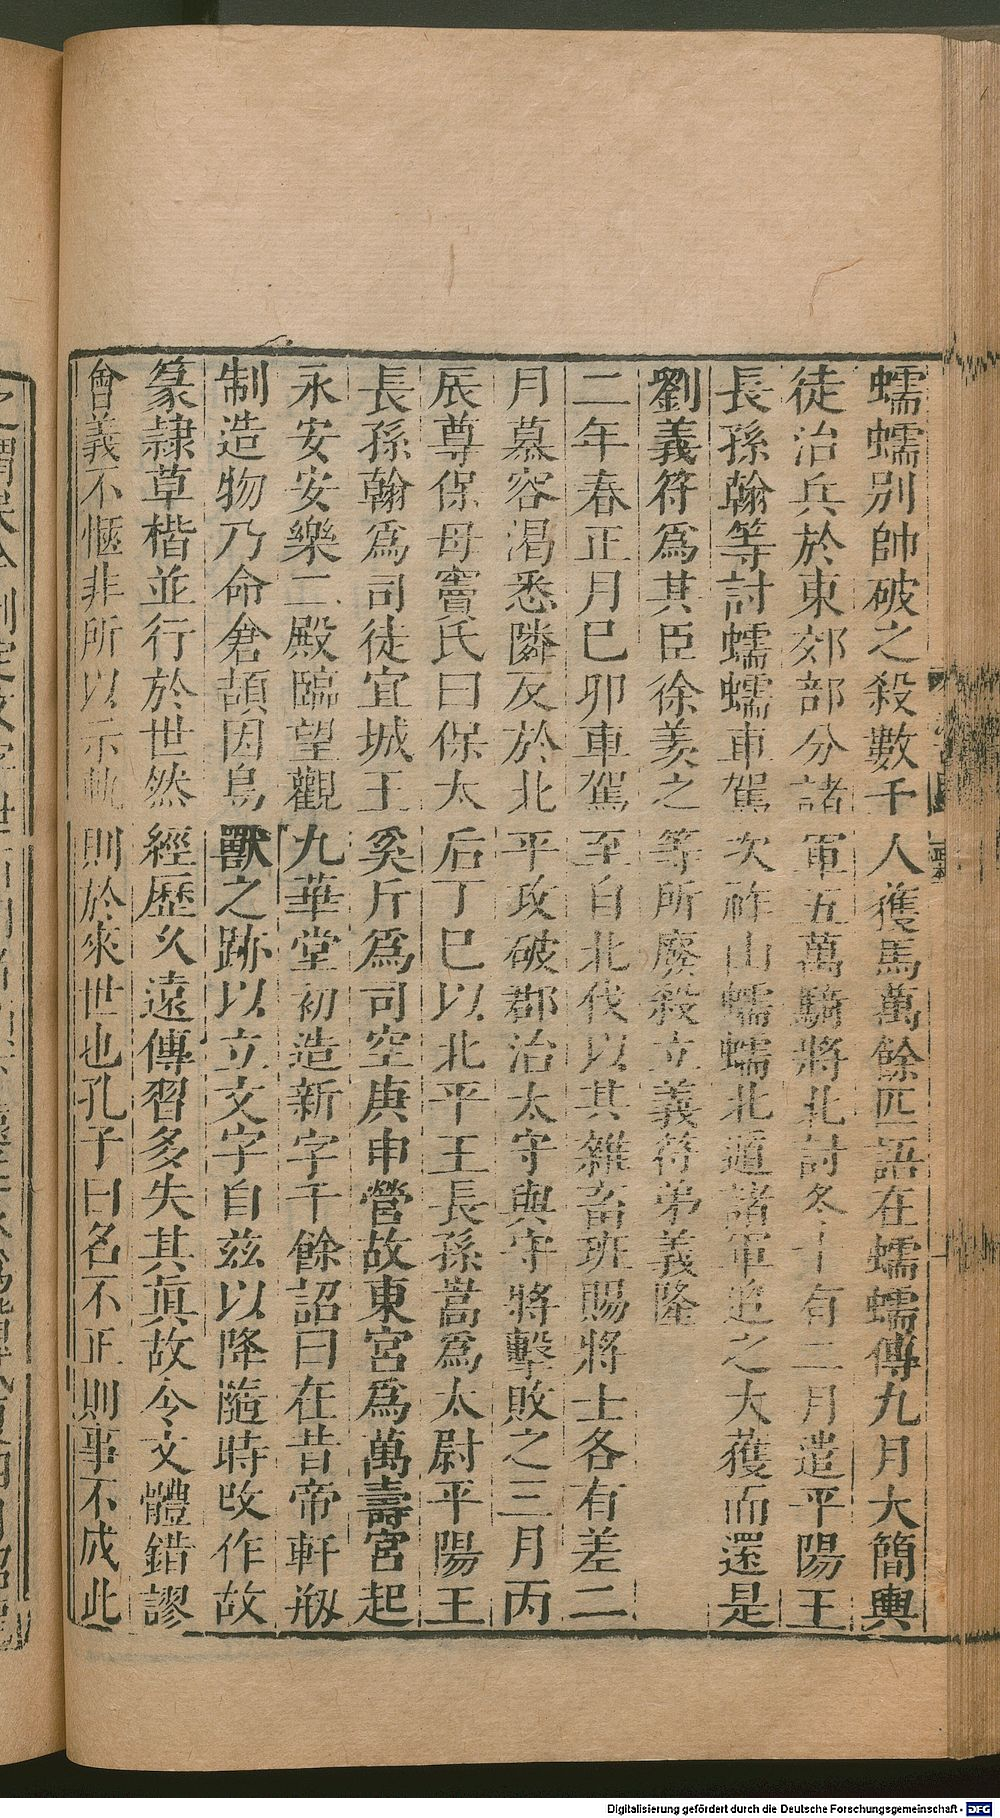 蠕蠕別帥破之殺數千人獲馬萬餘匹語在蠕蠕傳九月大簡輿
徒治兵於東郊部分諸軍五萬騎將北討冬十有二月遣平陽王
長孫翰等討蠕蠕車駕次祚山蠕蠕北遁諸軍追之大獲而還是
劉義符爲其臣徐羨之等所廢殺立義符弟義隆
二年春正月巳卯車駕至自北伐以其雜畜班賜將士各有差二
月慕容渴悉隣反於北平攻破郡治太守與守將擊敗之三月丙
辰尊保母竇氏曰保太后丁巳以北平王長孫嵩爲太尉平陽王
長孫翰爲司徒宜城王奚斤爲司空庚申營故東宮爲萬壽宮起
永安安樂二殿臨望觀九華堂初造新字千餘詔曰在昔帝軒刱
制造物乃命倉頡因鳥獸之跡以立文字自兹以降隨時改作故
篆隷草楷並行於世然經歷久遠傳習多失其眞故令文體錯謬
會義不愜非所以示軌則於來世也孔子曰名不正則事不成此
Digitalisierung gefördert durch die Deutsche Forschungsgemeinschaft - DFG